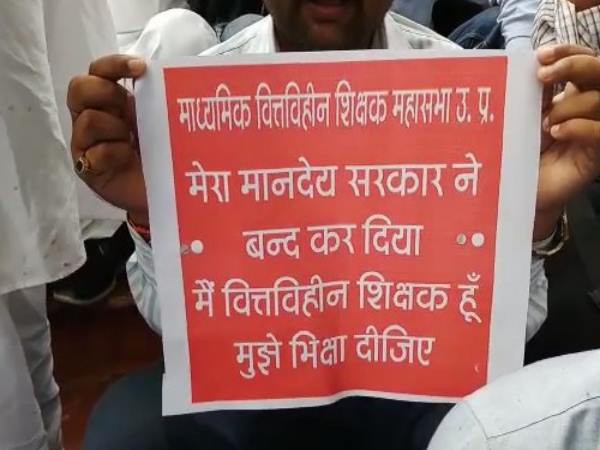 माध्यमिक वित्तविहीन शिक्षक महासभा उ. प्र.
मेरा मानदेय सरकार ने
बन्द कर दिया
मैं वित्तविहीन शिक्षक हूँ
मुझे भिक्षा दीजिए